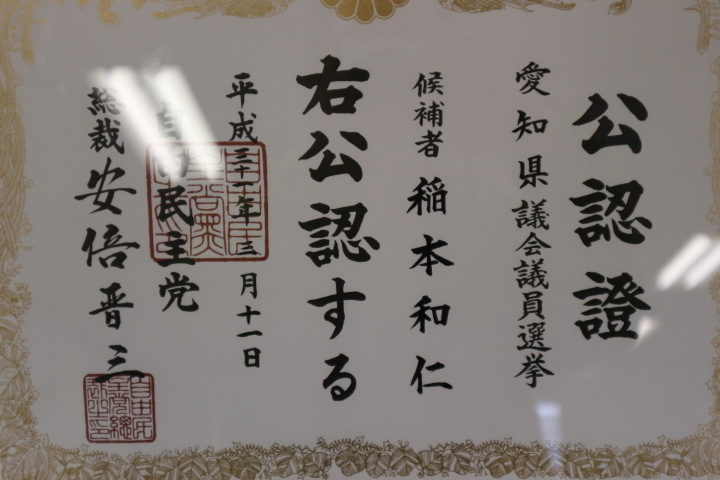 公認證
愛知県議会議員選挙
候補者 稲本和仁
右公認する
平成三十一年三月十一日
自由民主党
総裁 安倍晋三